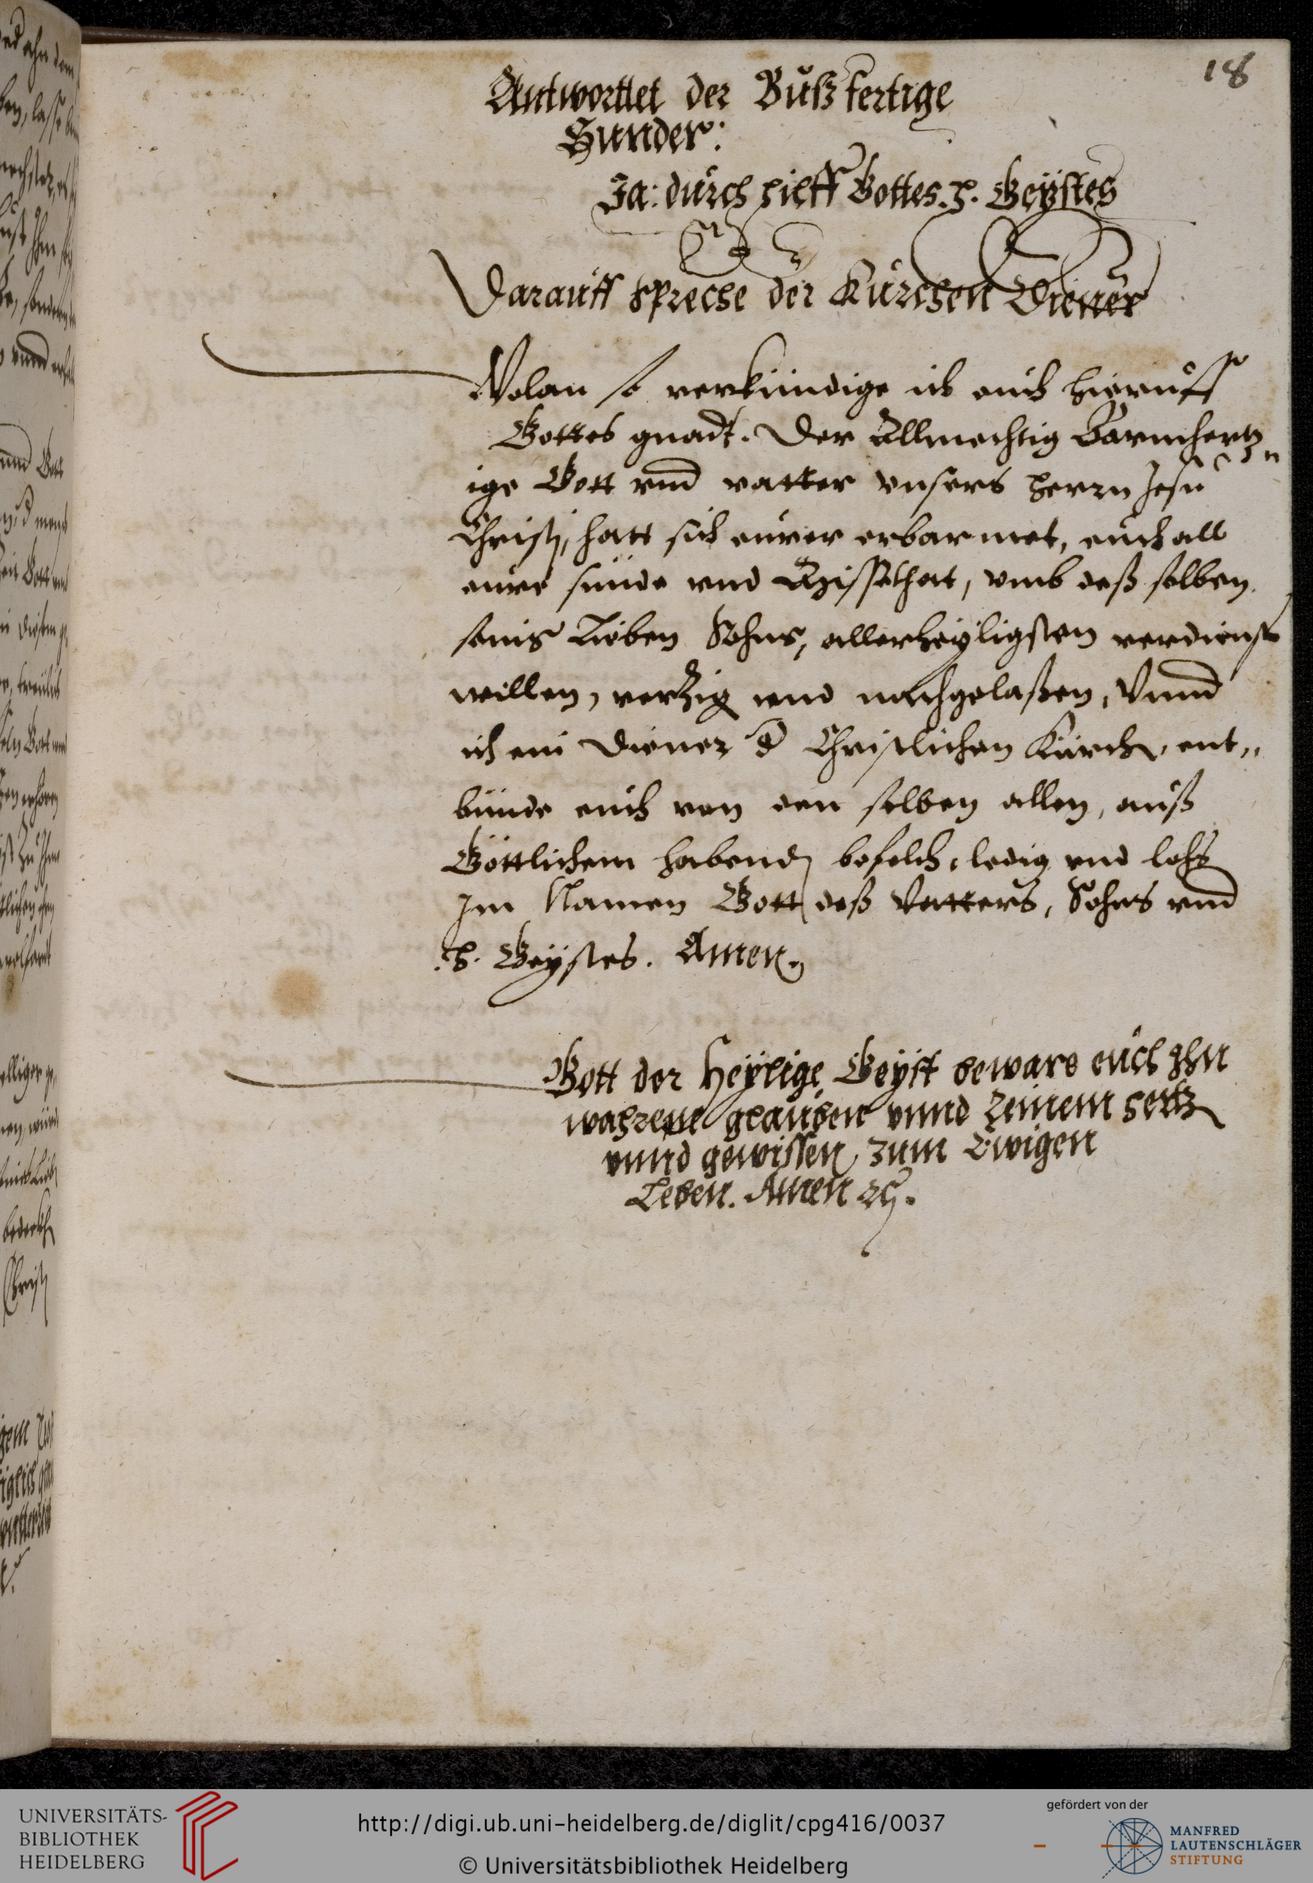 18
Antworttet der Bußfertige
Sünder:
Ja: durch hilff Gottes. H. Geÿstes
Darauff spreche der Kürchen Diener
Wolan so verkündige ich euch hieruff
Gottes gnadt. Der Allmechtig Barmhertz„
ige Gott vnd vatter vnsers herrn Jesu
Christj, hatt sich eurer erbarmet, euch all
eure sünde vnd Missethat, vmb deß selben
seins Lieben Sohns, allerheÿligsten verdienst
willen, verzig vnd nachgelaßen, Vnnd
ich ein Diener d Christlichen Kürch, ent„
binde euch von den selben allen, auß
Göttlichem habendt befelch, ledig vnd loß
Im Namen Gott deß Vatters, Sohns vnd
.H. Geÿstes. Amen.
Gott der Heÿlige Geÿst beware euch Ihn
wahrem glauben vnnd Reinem hertz
vnnd gewissen, zum Ewigen
Leben. Amen ꝛc.
UNIVERSITÄTS-
BIBLIOTHEK
HEIDELBERG
http://digi.ub.uni-heidelberg.de/diglit/cpg416/0037
© Universitätsbibliothek Heidelberg
gefördert von der
MANFRED
LAUTENSCHLÄGER
STIFTUNG